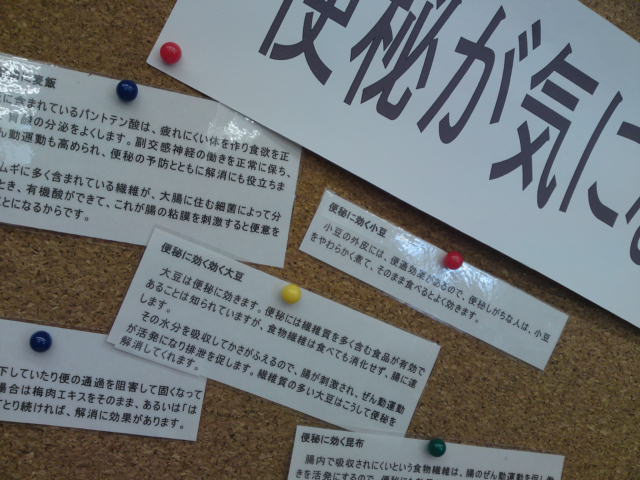 便秘が気に
麦飯
に含まれているパントテン酸は、疲れにくい体を作り食欲を正
胃酸の分泌をよくします。副交感神経の働きを正常に保ち、
ん動運動も高められ、便秘の予防とともに解消にも役立ちま
ムギに多く含まれている繊維が、大腸に住む細菌によって分
とき、有機酸ができて、これが腸の粘膜を刺激すると便意を
とになるからです。
便秘に効く小豆
小豆の外皮には、便通効果があるので、便秘しがちな人は、小豆
をやわらかく煮て、そのまま食べるとよく効きます。
便秘に効く効く大豆
大豆は便秘に効きます。便秘には繊維質を多く含む食品が有効で
あることは知られていますが、食物繊維は食べても消化せず、腸に達
します。
その水分を吸収してかさがふえるので、腸が刺激され、ぜん動運動
が活発になり排泄を促します。繊維質の多い大豆はこうして便秘を
解消してくれます。
下していたり便の通過を阻害して固くなって
場合は梅肉エキスをそのまま、あるいは「は
とり続ければ、解消に効果があります。
便秘に効く昆布
腸内で吸収されにくいという食物繊維は、腸のぜん動運動を促し
きを活発にするので、便秘に